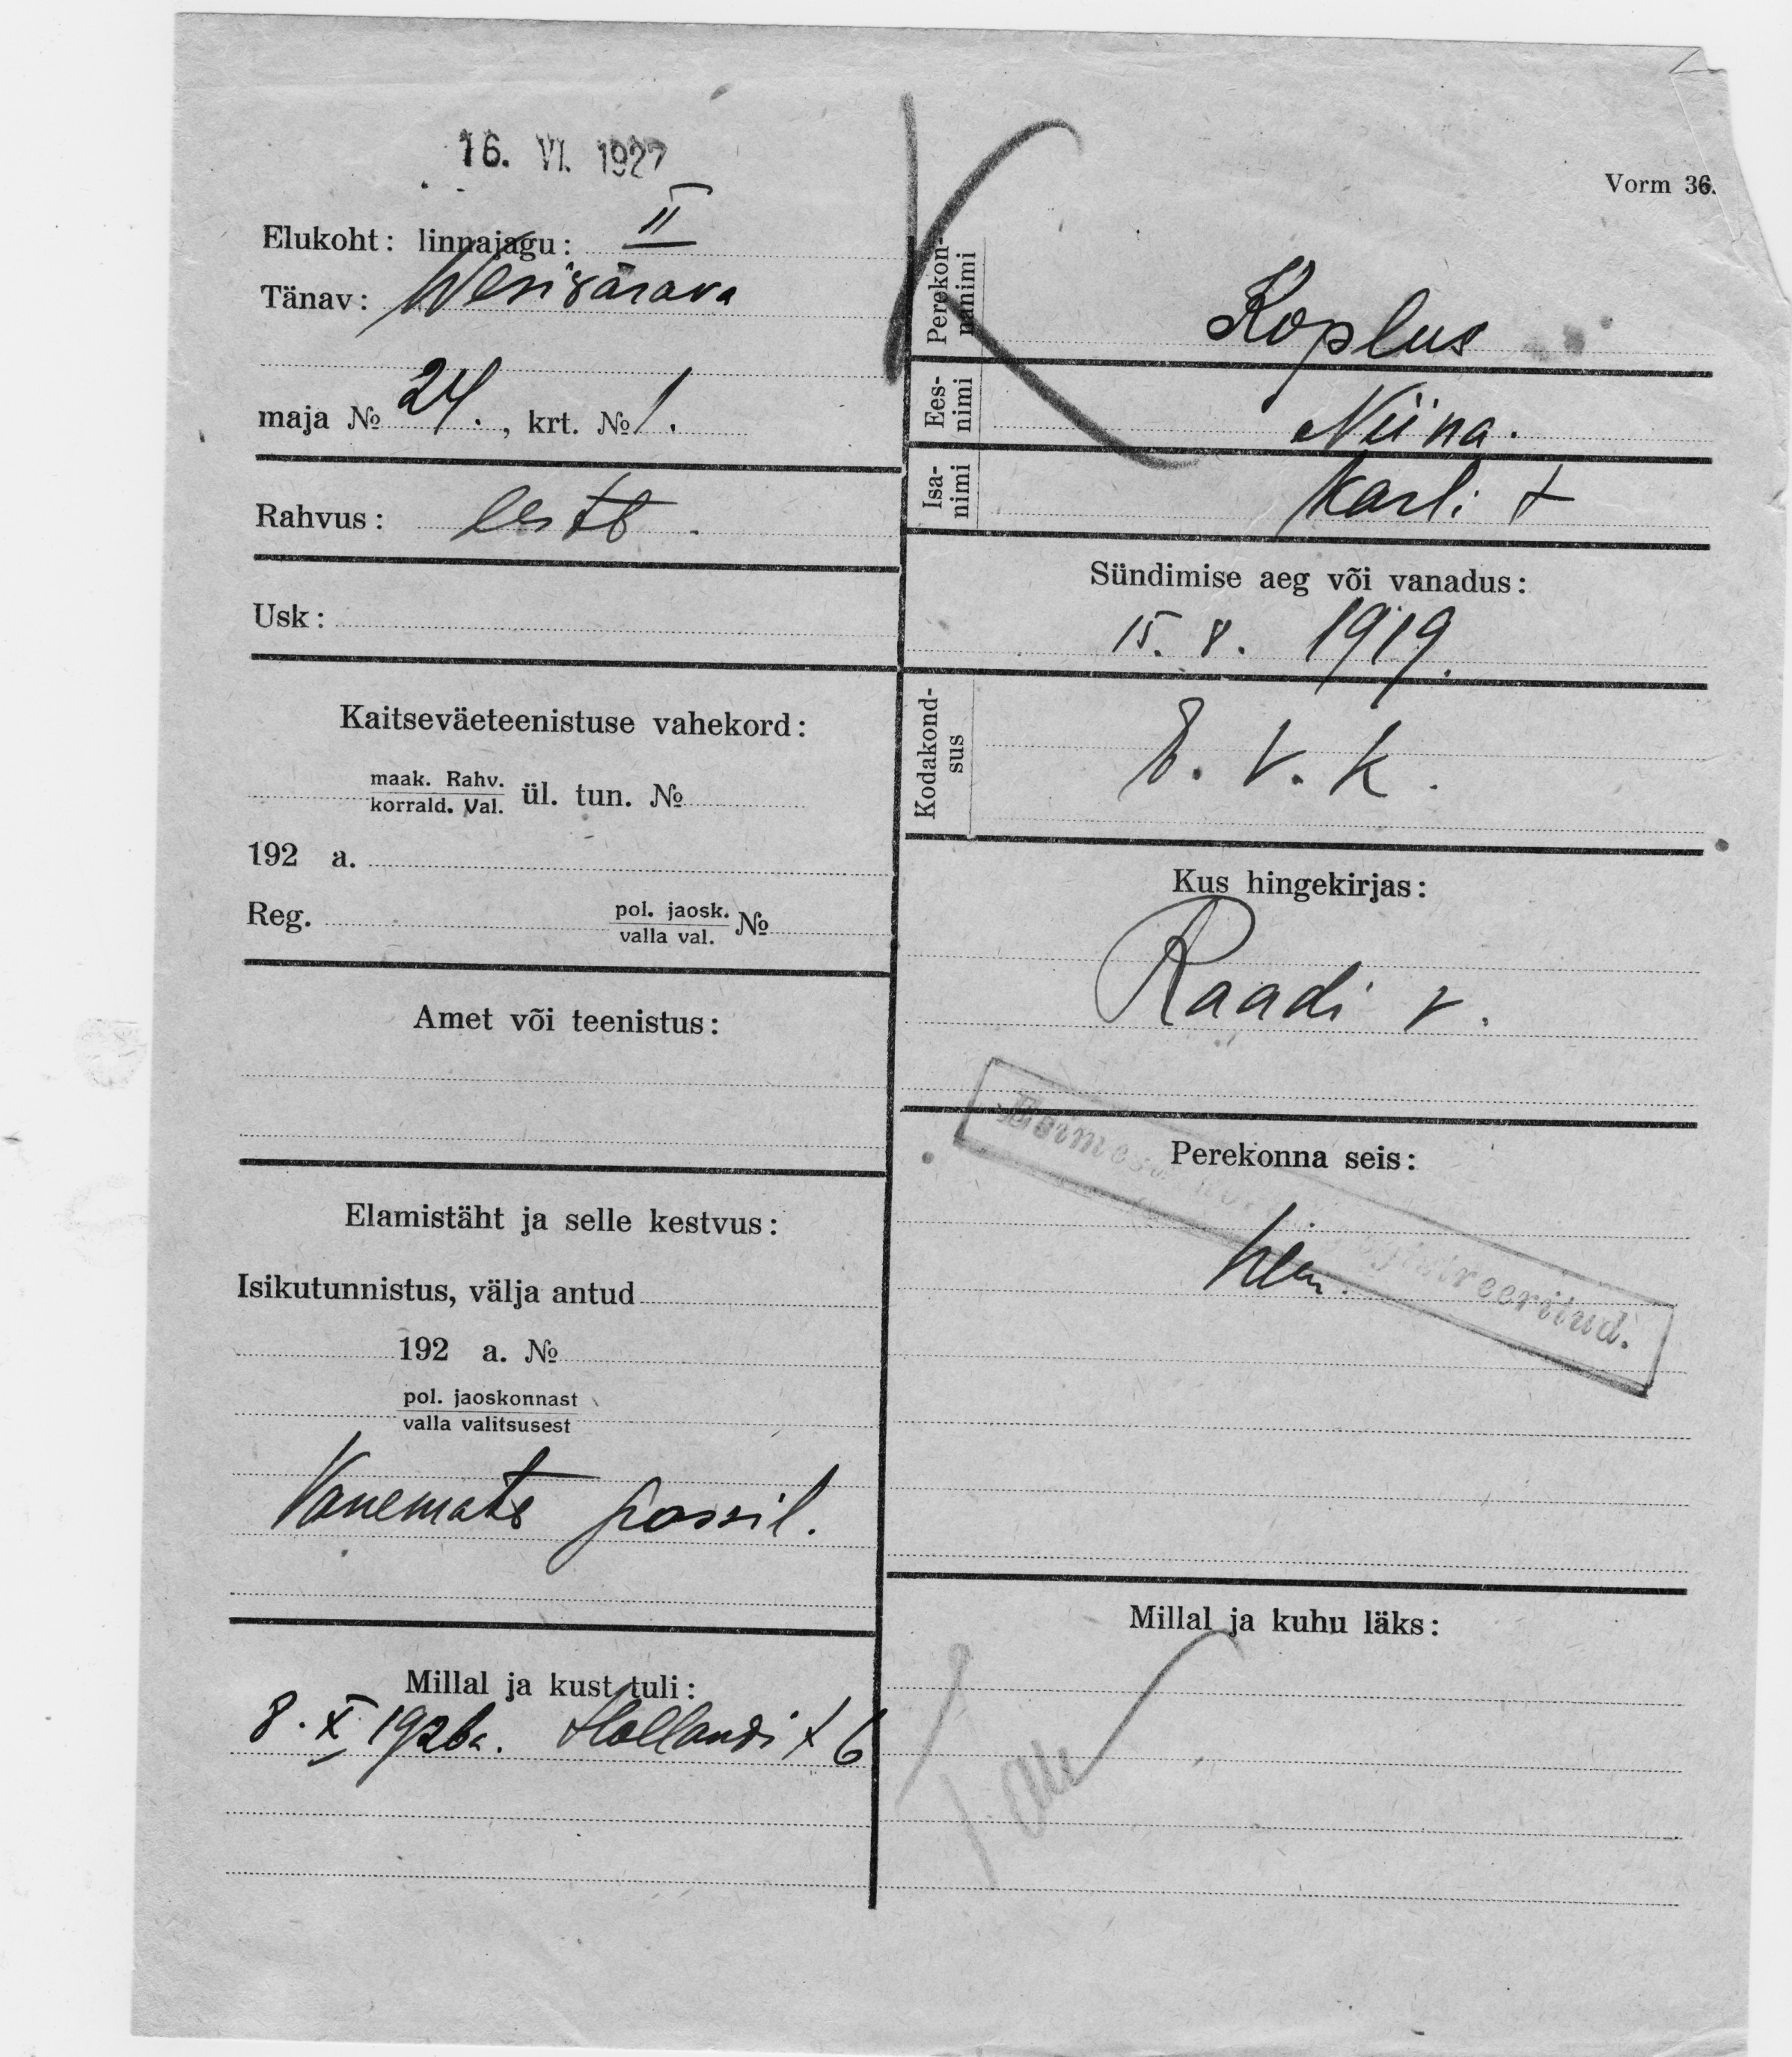 16. VI. 1927
Vorm 36.
Elukoht: linnajagu: II
Tänav: Wesivärava
maja № 24., krt. № 1.
Rahvus: eestl.
Usk:
Kaitseväeteenistuse vahekord:
maak. Rahv.
korrald. Val. ül. tun. №
192 a.
Reg. pol. jaosk.
valla val. №
Amet või teenistus:
Elamistäht ja selle kestvus:
Isikutunnistus, välja antud
192 a. №
pol. jaoskonnast
valla valitsusest
Vanemate passil.
Millal ja kust tuli:
8. X 1926a. Hollandi t 6
K
Perekon-
nanimi
Koplus
Ees-
nimi
Niina.
Isa-
nimi
Karli t
Sündimise aeg või vanadus:
15. 8. 1919.
Kodakond-
sus
E. V. k.
Kus hingekirjas:
Raadi v.
Perekonna seis:
registreeritud.
Millal ja kuhu läks: